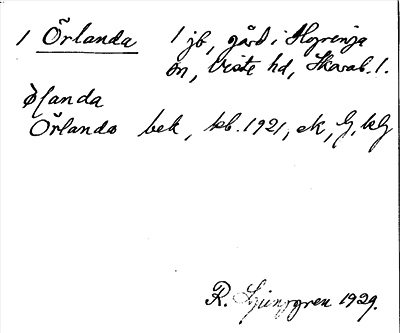 1 Örlanda 1 jb, gård i Hyrenja
sn, Viste hd, Skarab. l.
Örlanda bek, kb. 1921, ek, G, kG
R. Ljunggren 1929.